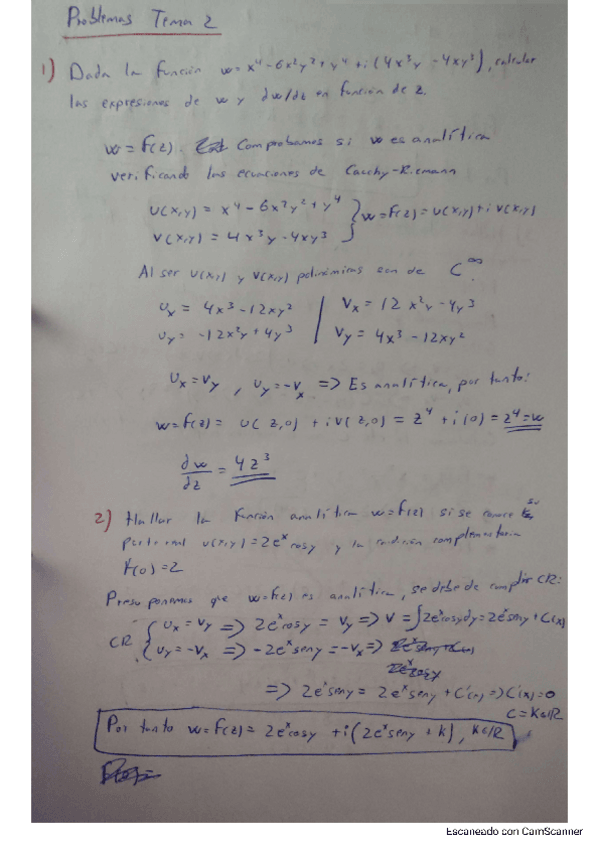 Problemas Tema 2
1) Dada la función w = x⁴ - 6x²y² + y⁴ + i(4x³y - 4xy³), calcular
las expresiones de w y dw/dz en función de z.
w = f(z). Comprobamos si w es analítica
verificando las ecuaciones de Cauchy-Riemann
U(x,y) = x⁴ - 6x²y² + y⁴
V(x,y) = 4x³y - 4xy³ } w = f(z) = U(x,y) + i V(x,y)
Al ser U(x,y) y V(x,y) polinómicas son de C^∞.
Ux = 4x³ - 12xy² | Vx = 12x²y - 4y³
Uy = -12x²y + 4y³ | Vy = 4x³ - 12xy²
Ux = Vy , Uy = -Vx => Es analítica, por tanto:
w = f(z) = U(z,0) + i V(z,0) = z⁴ + i(0) = z⁴ = w
dw/dz = 4z³
2) Hallar la función analítica w = f(z) si se conoce su
parte real u(x,y) = 2eˣcosy y la condición complementaria
f(0) = 2
Presuponemos que w = f(z) es analítica, se debe de cumplir CR:
CR { Ux = Vy => 2eˣcosy = Vy => V = ∫2eˣcosydy = 2eˣseny + C(x)
Uy = -Vx => -2eˣseny = -Vx =>
=> 2eˣseny = 2eˣseny + C'(x) => C'(x) = 0
C = K∈ℝ
Por tanto w = f(z) = 2eˣcosy + i(2eˣseny + k), k∈ℝ
Escaneado con CamScanner